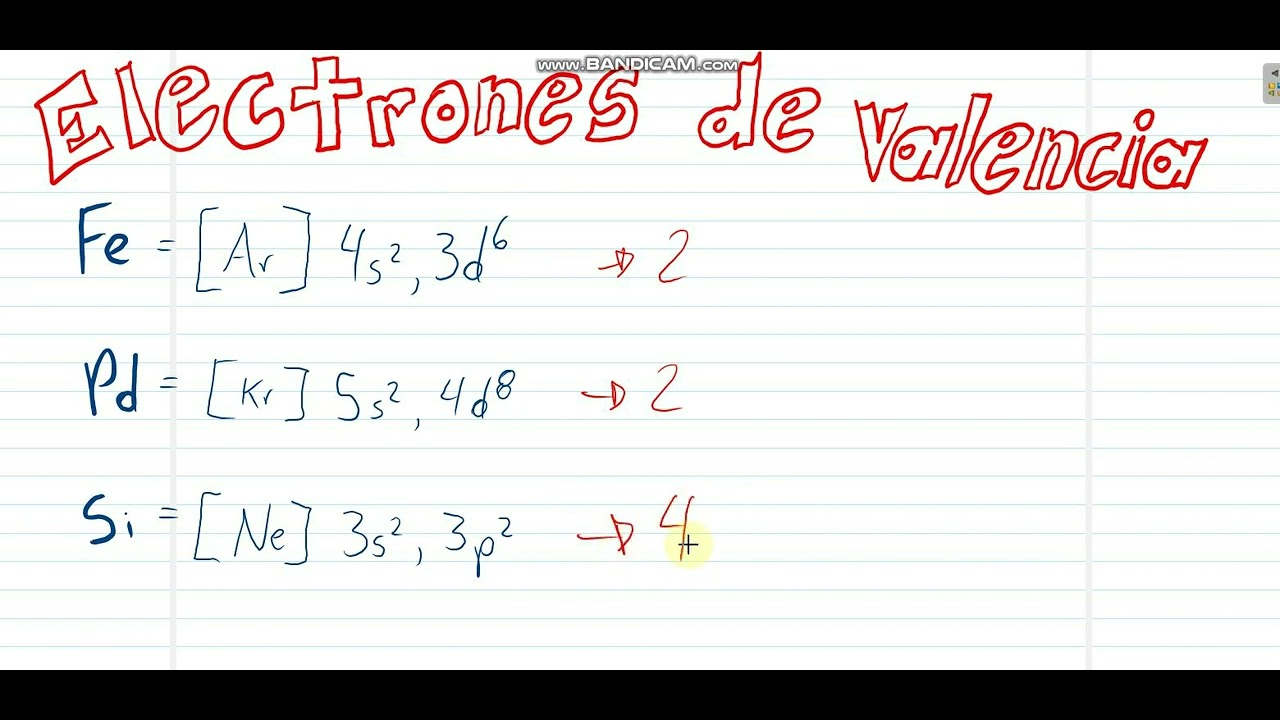 www.BANDICAM.com
Electrones de Valencia
Fe = [Ar] 4s², 3d⁶ → 2
Pd = [Kr] 5s², 4d⁸ → 2
Si = [Ne] 3s², 3p² → 4